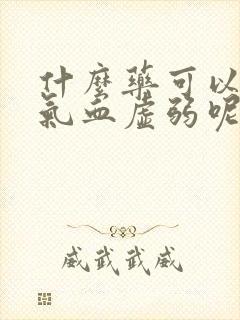 什麼藥可以
氣血虛弱呢
威武武威